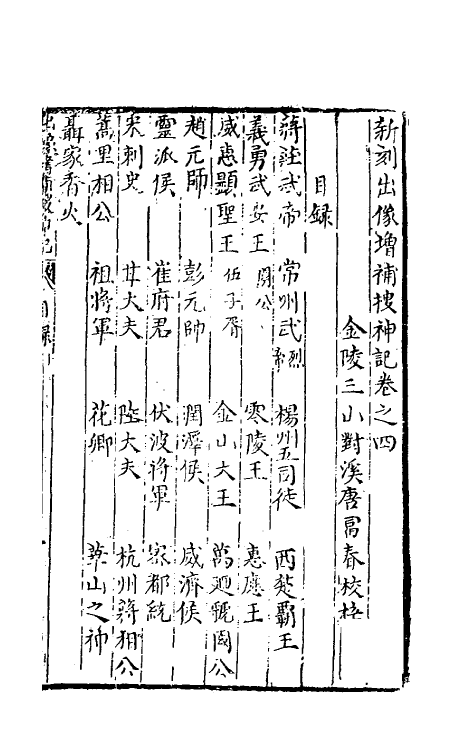 新刻出像增補搜神記卷之四
金陵三山對溪唐富春校梓
目録
蔣莊武帝 常州武烈帝 楊州五司徒 西楚霸王
義勇武安王 關公 零陵王 惠應王
威惠顯聖王 伍子胥 金山大王 萬廻虢國公
趙元帥 彭元帥 潤澤侯 威濟侯
靈派侯 崔府君 伏波將軍 宋都統
朱刺史 甘大夫 陸大夫 杭州蔣相公
蒿里相公 祖將軍 花卿 華山之神
聶家香火